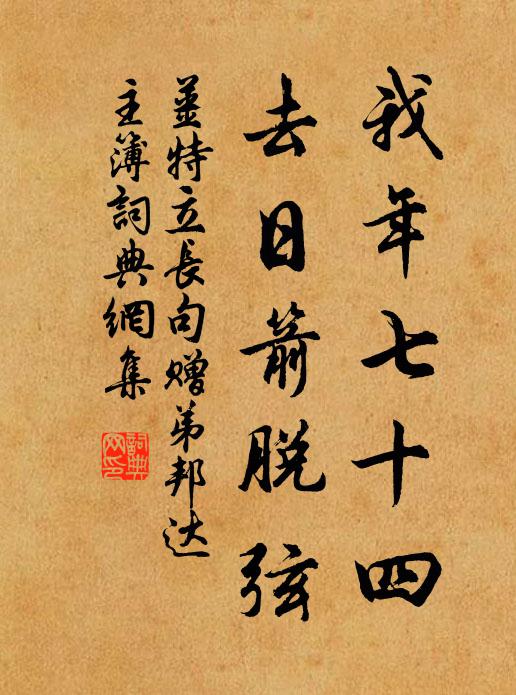 我年七十四
去日箭脱弦
姜特立長句赠弟邦达
主簿詞典網集
詞典网印